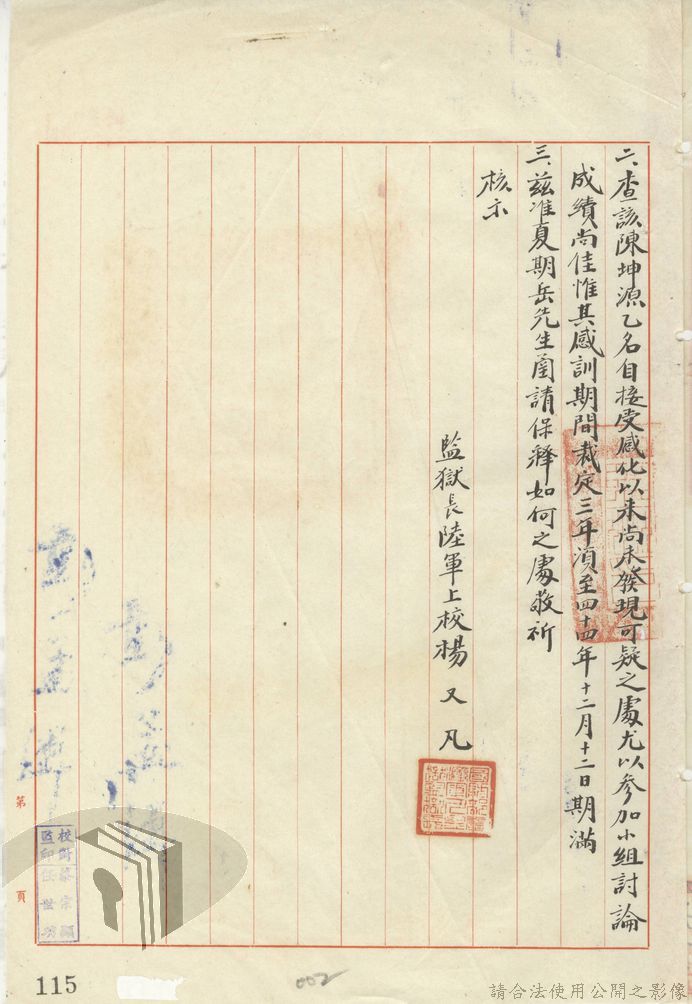 二、查該陳坤源乙名自接受感化以來尚未發現可疑之處尤以參加小組討論
成績尚佳惟其感訓期間裁定三年須至四十四年十二月十二日期滿
三、茲准夏期岳先生函請保釋如何之處敬祈
核示
監獄長陸軍上校楊又凡
第 頁
校對
監印任世
115
002
請合法使用公開之影像